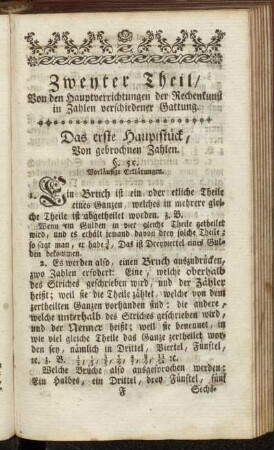 Zweyter Theil/
Von den Hauptverrichtungen der Rechenkunst
in Zahlen verschiedener Gattung.
Das erste Hauptstück,
Von gebrochnen Zahlen.
Vorläufige Erklärungen.
1. Ein Bruch ist ein oder etliche Theile
eines Ganzen, welches in mehrere glei-
che Theile ist abgetheilet worden. z. B.
Wenn ein Gulden in vier gleiche Theile getheilet
wird, und es erhält jemand davon drey solche Theile;
so sagt man, er habe ¾, Das ist Dreyviertel eines Gul-
den bekommen.
2. Es werden also, einen Bruch auszudrücken,
zwo Zahlen erfodert: Eine, welche oberhalb
des Striches geschrieben wird, und der Zähler
heißt; weil sie die Theile zählet, welche von dem
zertheilten Ganzen vorhanden sind: die andere,
welche unterhalb des Striches geschrieben wird,
und der Nenner heißt; weil sie benennet, in
wie viel gleiche Theile das Ganze zertheilet wor-
den sey, nämlich in Drittel, Viertel, Fünftel,
ꝛc. z. B.
Welche Brüche also ausgesprochen werden:
Ein Halbes, ein Drittel, drey Fünftel, fünf
F Sechs-